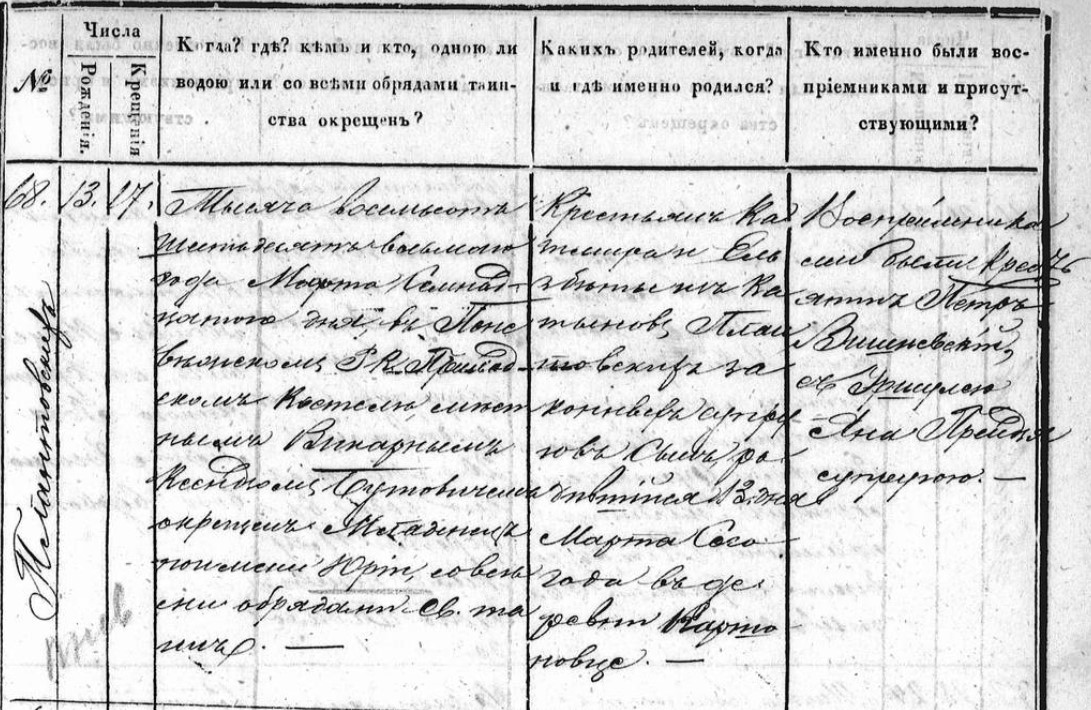 №
Числа
Рожденія.
Крещенія
Когда? гдѣ? кѣмъ и кто, одною ли
водою или со всѣми обрядами таин-
ства окрещенъ?
Какихъ родителей, когда
и гдѣ именно родился?
Кто именно были вос-
пріемниками и присут-
ствующими?
68.
13.
17.
Плантовскій
Тысяча восемьсотъ
шестьдесятъ восьмого
года Марта Семнад-
цатого дня, въ
Р. К. Приход-
скомъ Костелѣ мѣст
нымъ Викарнымъ
Ксендзомъ Бутовичемъ
окрещенъ Младенецъ
по имени Юрій, со всѣ
ми обрядами Св. та
инъ. —
Крестьянъ Ка
зимира и Ель
жбѣты изъ
План
товскихъ за
конныхъ супру
говъ Сынъ ро
дившійся 13. дня
Марта Сего
года въ де
ревни
новце. —
Воспріемника
ми были Крест
янинъ Петръ
Вишневскій,
съ Уршулею
Яна
супругою. —